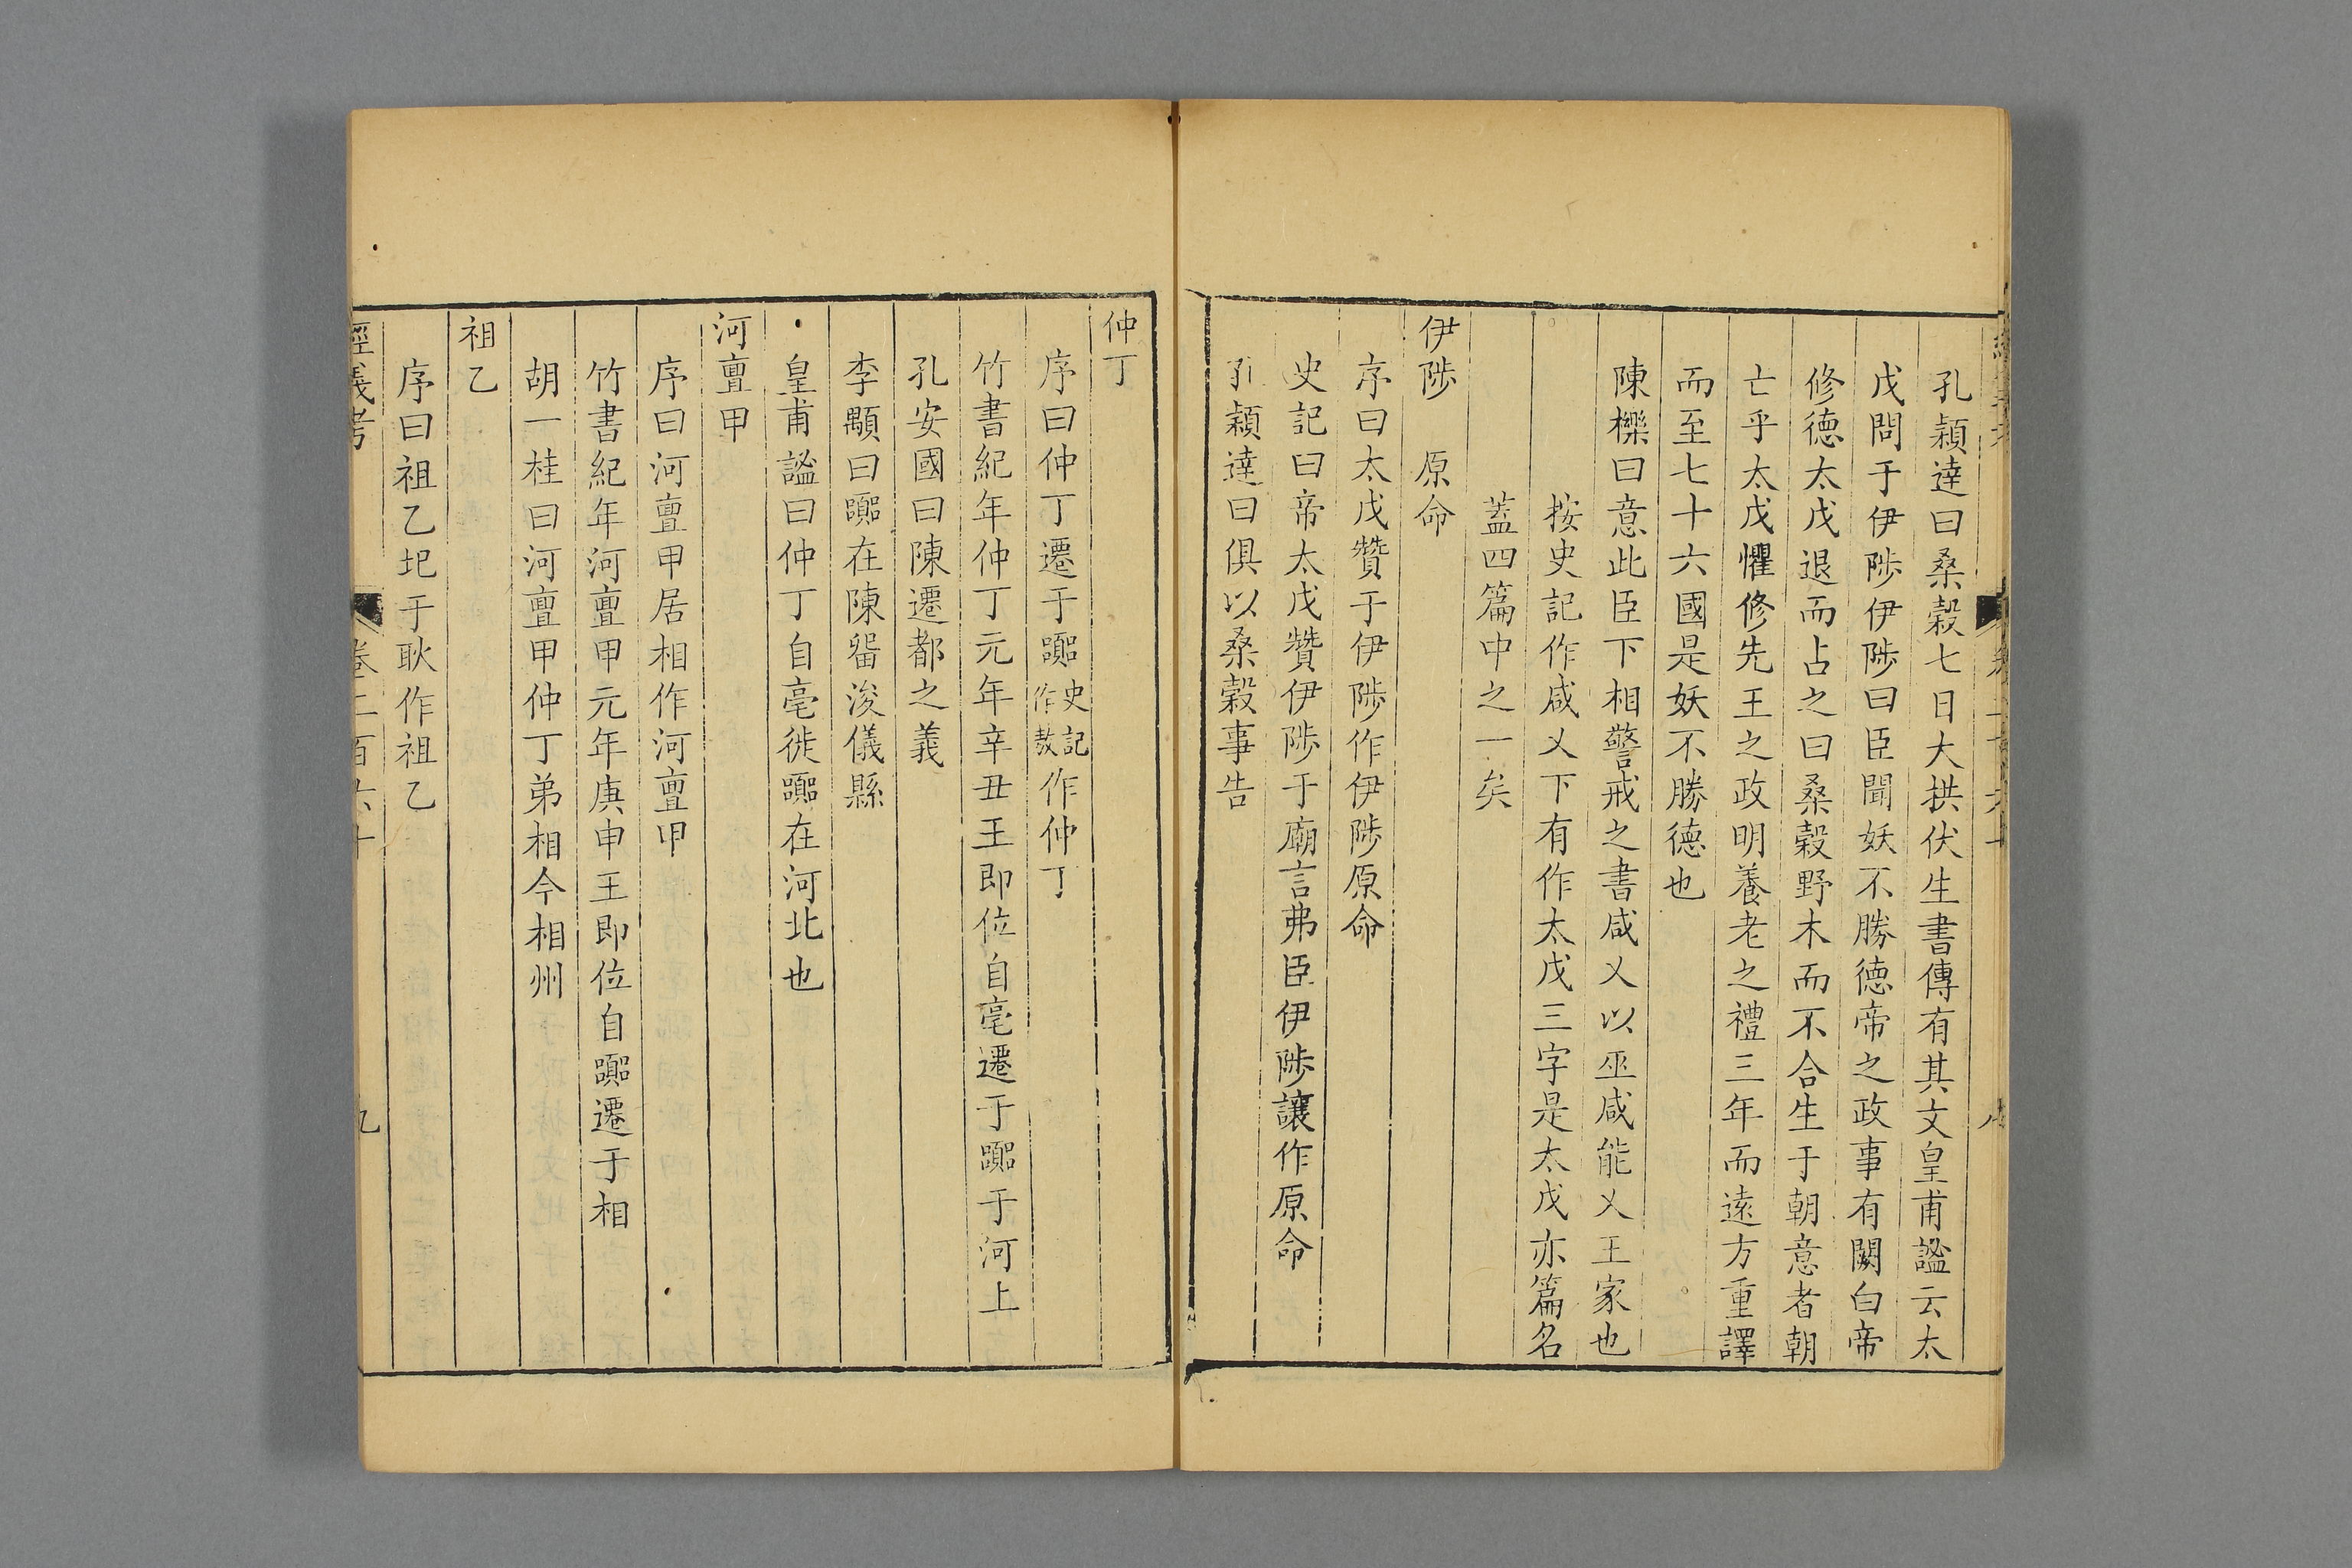 孔穎達曰桑穀七日大拱伏生書傳有其文皇甫謐云太
戊問于伊陟伊陟曰臣聞妖不勝德帝之政事有闕白帝
修德太戊退而占之曰桑穀野木而不合生于朝意者朝
亡乎太戊懼修先王之政明養老之禮三年而遠方重譯
而至七十六國是妖不勝德也
陳櫟曰意此臣下相警戒之書咸乂以巫咸能乂王家也
按史記作咸乂下有作太戊三字是太戊亦篇名
蓋四篇中之一矣
伊陟　原命
序曰太戊贊于伊陟作伊陟原命
史記曰帝太戊贊伊陟于廟言弗臣伊陟讓作原命
孔穎達曰俱以桑穀事告
仲丁
序曰仲丁遷于嚻史記作敖作仲丁
竹書紀年仲丁元年辛丑王即位自亳遷于嚻于河上
孔安國曰陳遷都之義
李顒曰嚻在陳畱浚儀縣
皇甫謐曰仲丁自亳徙嚻在河北也
河亶甲
序曰河亶甲居相作河亶甲
竹書紀年河亶甲元年庚申王即位自嚻遷于相
胡一桂曰河亶甲仲丁弟相今相州
祖乙
序曰祖乙圯于耿作祖乙
經義考　卷二百六十　九